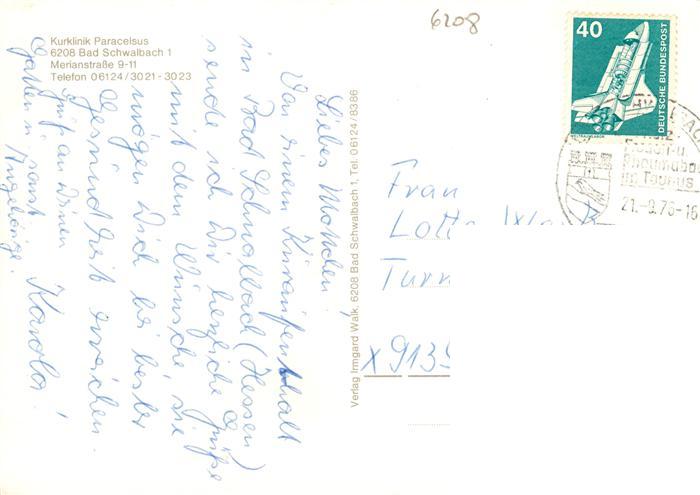 6208
Kurklinik Paracelsus
6208 Bad Schwalbach 1
Merianstraße 9-11
Telefon 06124/3021-3023
Liebes
Von einem Kuraufenthalt
in Bad Schwalbach (Hessen)
sende ich Dir herzliche Grüße
mit dem Wunsche, sie
mögen Dich bei bester
Gesundheit erreichen.
Gruß an Deinen
Gatten u. sonst
Angehörige.
Karola!
Verlag Irmgard Walk, 6208 Bad Schwalbach 1, Tel. 06124/8386
40
DEUTSCHE BUNDESPOST
WELTRAUMLABOR
Rheumabad
im Taunus
21.-9.76-16
Frau
Lotte
Turn
x 9135